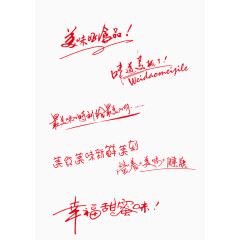 美味的食品！
味道美极了！
Weidaomeijile
最美味的时刻给最美的你……
美食美味新鲜美刻
营养·美味·健康
幸福甜蜜味！